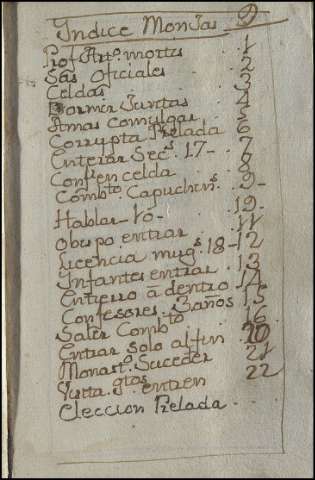 Yndice Monjas
Prof. Art.º mortis . 1
Sas oficiales . 2
Celdas . 2
Dormir Juntas . 3
Amas comulgar . 4
Corrupta Prelada . 5
Enterrar Sec.s 17- . 6
Conf. en celda . 7
Comb.to Capuchin.s . 8
Hablar - 10- . 9-
Obispo entrar . 19.
Licencia mug.s 18- 11
Ynfantes entrar . 12
Entierro ā dentro . 13
Confesores. 3 años 14
Salir Comb.to 15
Entrar solo al fin . 16
Monast.º Suceder 20
Visita gtos entren 21
Eleccion Prelada . 22